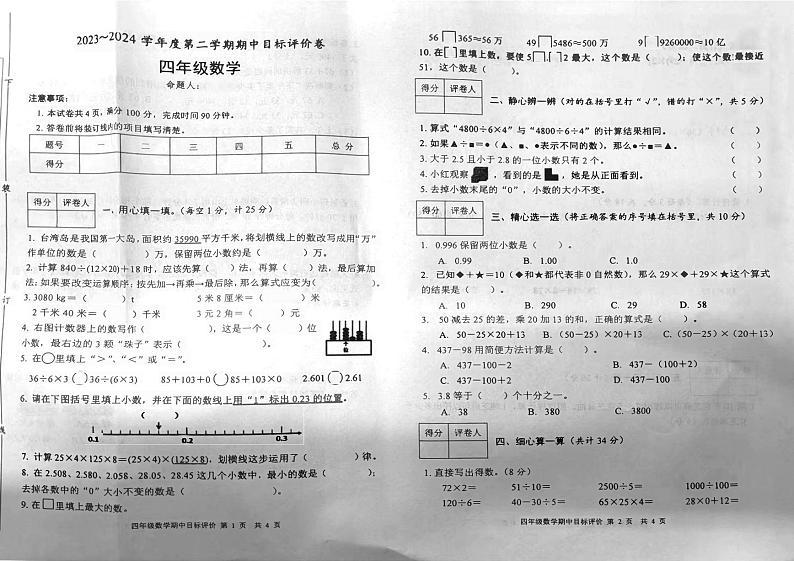 2023~2024 学年度第二学期期中目标评价卷
四年级数学
命题人：
注意事项：
1. 本试卷共 4 页，满分 100 分，完成时间 90 分钟。
2. 答卷前将装订线内的项目填写清楚。
题号 一 二 三 四 五 总 分
得分
得分 评卷人
一、用心填一填。（每空 1 分，计 25 分）
1. 台湾岛是我国第一大岛，面积约 35990 平方千米，将划横线上的数改写成用“万”
作单位的数是（ ）万，保留两位小数约是（ ）万。
2. 计算 840÷(12×20)+18 时，应该先算（ ）法，再算（ ）法，最后算加
法；如果要改变运算顺序：按先加→再乘→最后除，那么算式应变为（ ）。
3. 3080 kg＝（ ）t 5 米 8 厘米＝（ ）米
2 千米 40 米＝（ ）千米 3 元 2 角＝（ ）元
4. 右图计数器上的数写作（ ），这是一个（ ）位
小数，最右边的 3 颗“珠子”表示（ ）。
十 位
5. 在○里填上“＞”、“＜”或“＝”。
36÷6×3○36÷(6×3) 85+103+0○85+103×0 2.601○2.61
6. 请在下图括号里填上小数，并在下面的数线上用“↓”标出 0.23 的位置。
（ ）
0.1 0.2 0.3
7. 计算 25×4×125×8=(25×4)×(125×8)，划横线这步运用了（ ）律。
8. 在 2.508、2.580、2.058、28.05、28.45 这几个小数中，最小的数是（ ）；
去掉各数中的“0”大小不变的数是（ ）。
9. 在□里填上最大的数。
四年级数学期中目标评价 第 1 页 共 4 页
装
订
线
56□365≈56 万 49□5486≈500 万 9□9260000≈10 亿
10. 在□里填上数，要使 5□.□2 最大，这个数是（ ）；使这个数最接近
51，这个数是（ ）。
得分 评卷人
二、静心辨一辨（对的在括号里打“√”，错的打“×”，共 5 分）
1. 算式“4800÷6×4”与“4800÷6÷4”的计算结果相同。 （ ）
2. 如果▲÷■=●（▲、■、●表示不同的数），那么●÷■=▲。 （ ）
3. 大于 2.5 且小于 2.8 的一位小数只有 2 个。 （ ）
4. 小红观察 ，看到的是 ，她是从正面看到。 （ ）
5. 去掉小数末尾的“0”，小数的大小不变。 （ ）
得分 评卷人
三、精心选一选（将正确答案的序号填在括号里，共 10 分）
1. 0.996 保留两位小数是（ ）。
A. 0.99 B. 1.00 C. 1.0
2. 已知◆+★=10（◆和★都代表非 0 自然数），那么 29×◆+29×★这个算式
的结果是（ ）。
A. 10 B. 290 C. 29 D. 58
3. 50 减去 25 的差，乘 20 加 13 的和，正确的算式是（ ）。
A. 50－25×20+13 B. (50－25)×20+13 C. (50－25)×（20+13）
4. 437－98 用简便方法计算是（ ）。
A. 437－100－2 B. 437－(100+2)
C. 437－100+2 D. 437－100
5. 3.8 等于（ ）个十分之一。
A. 38 B. 380 C. 3800
得分 评卷人
四、细心算一算（共计 34 分）
1. 直接写出得数。（8 分）
72×2＝ 51÷10＝ 2500÷5＝ 1000÷100＝
120÷6＝ 40－30÷5＝ 65×25×4＝ 28×0+12＝
四年级数学期中目标评价 第 2 页 共 4 页